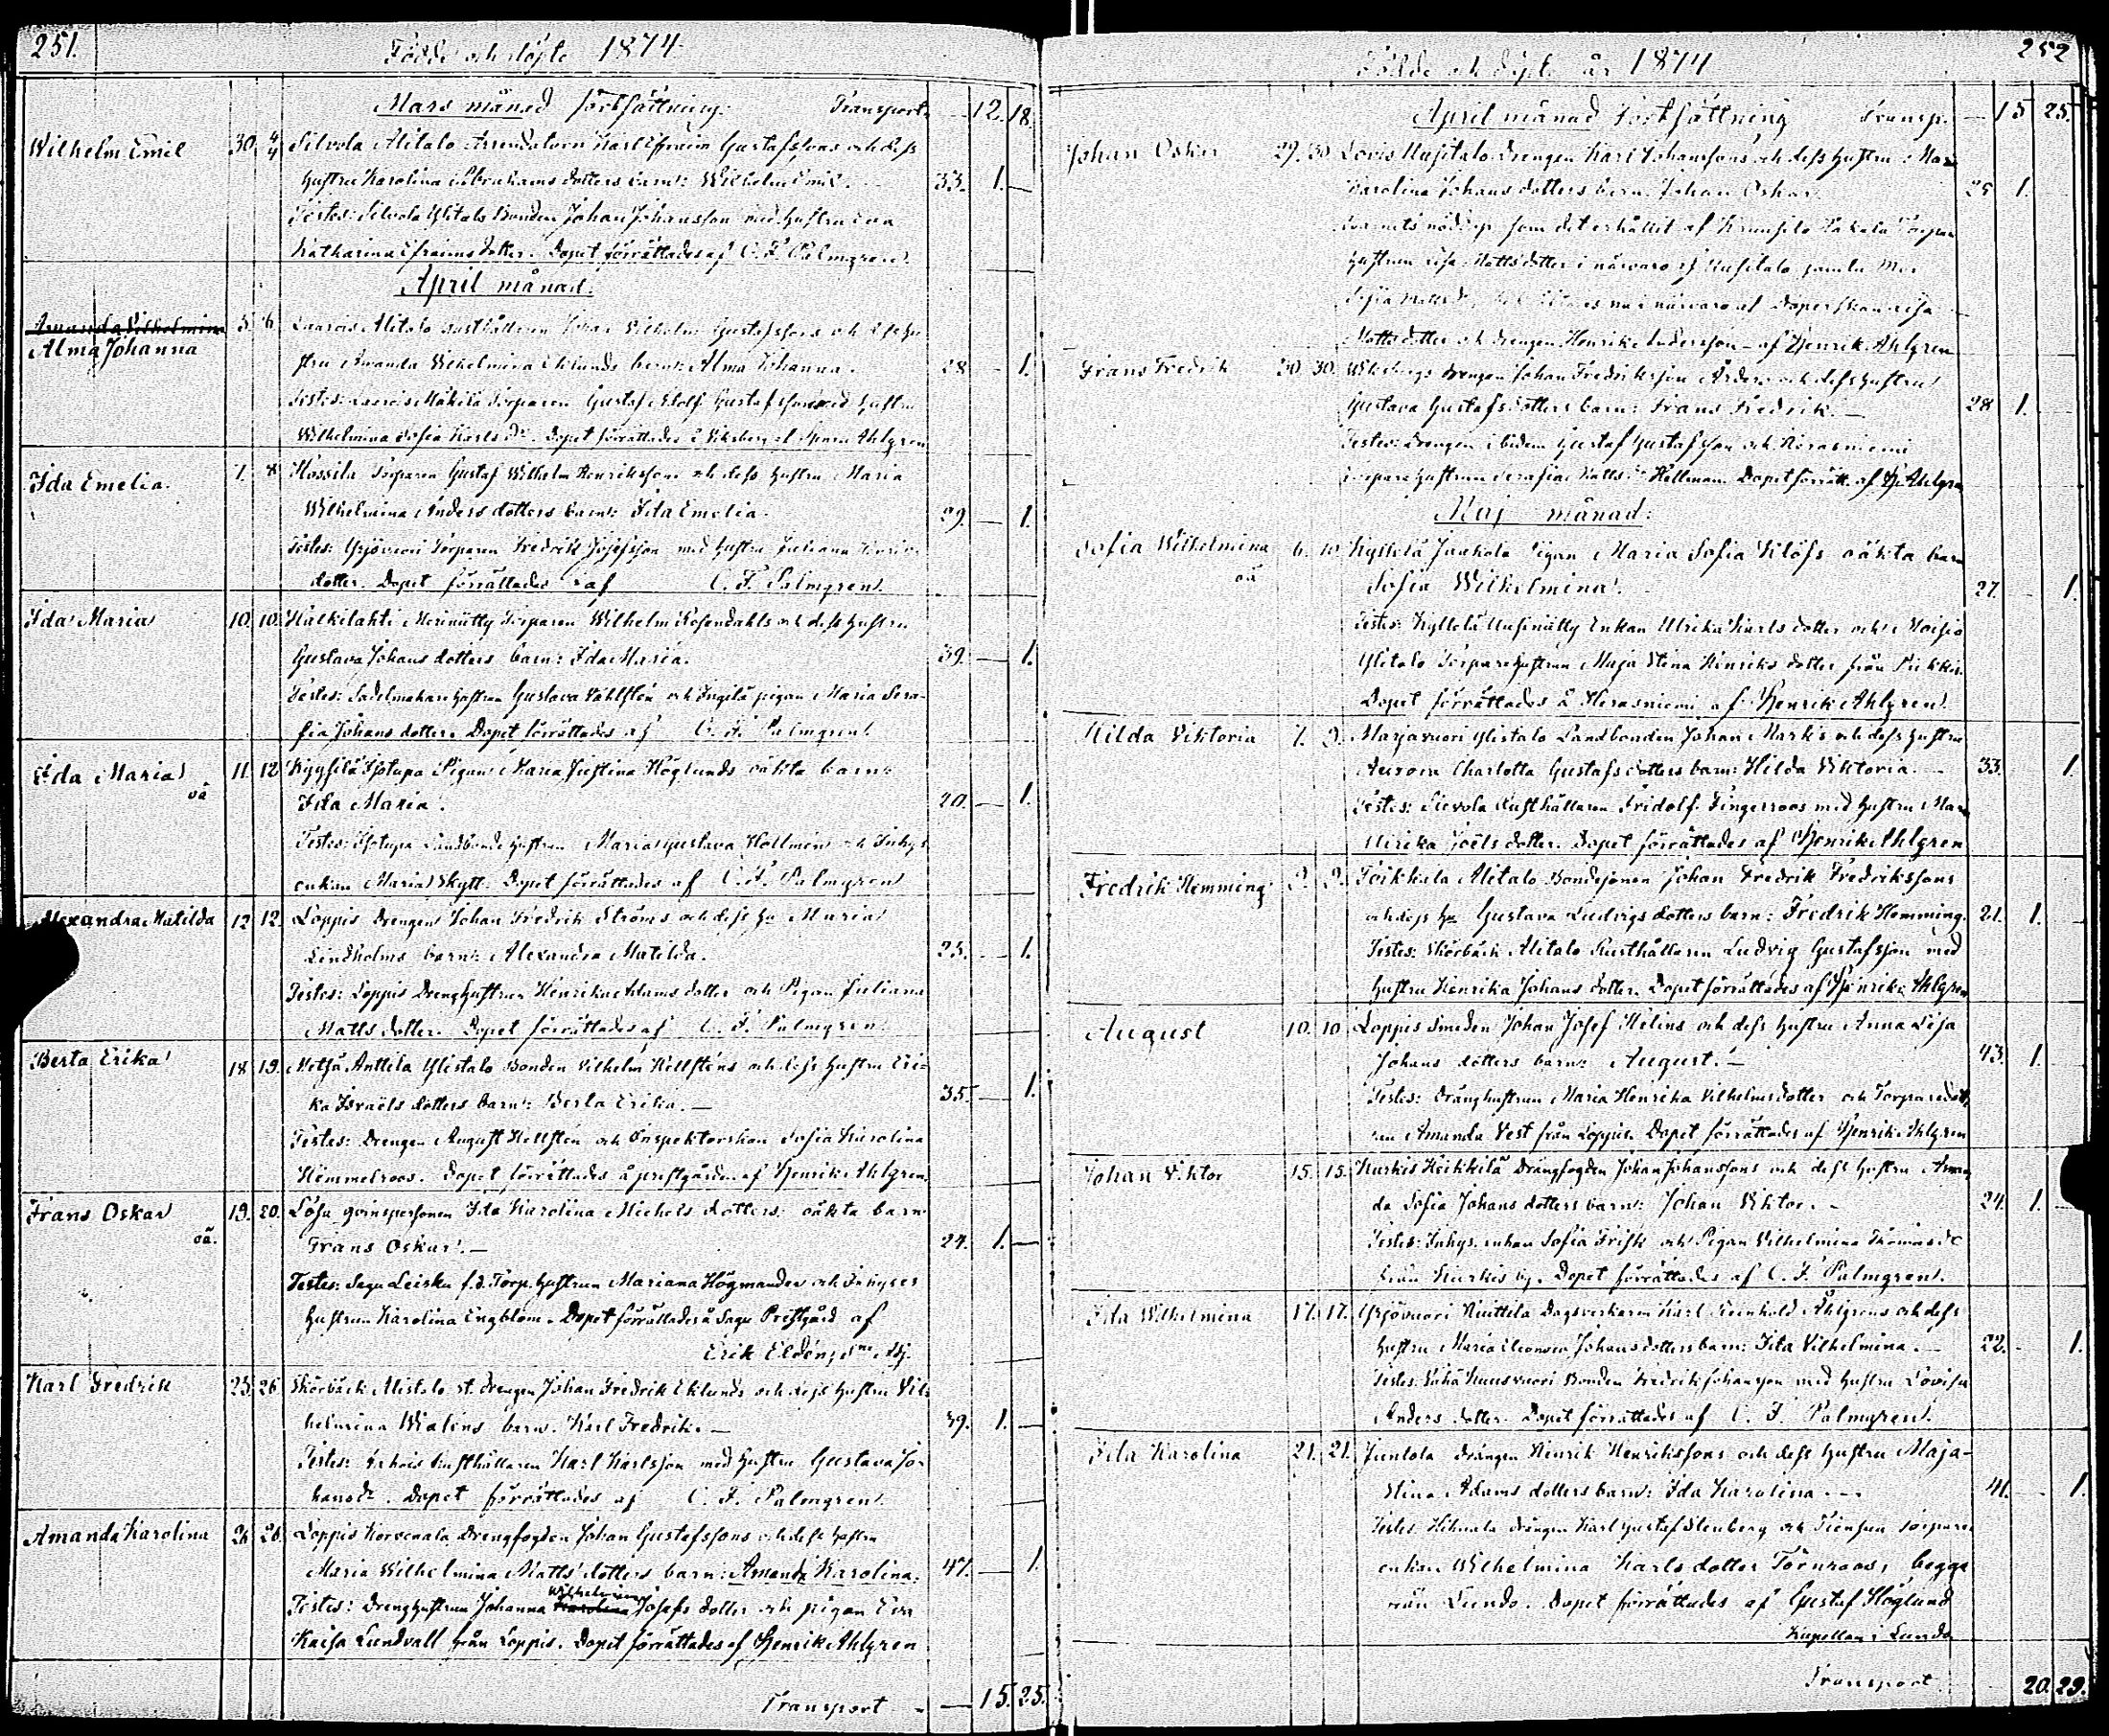 251.
Födde och döpte 1874
Mars månad fortsättning. Transport. — 12. 18.
Wilhelm Emil 30. 4/4 Silvola Alitalo Arrendatorn Karl Efraim Gustafssons och dess
hustru Karolina Abrahamsdotters barn: Wilhelm Emil. 33. 1. —
Testes: Silvola Ylitalo Bonden Johan Johansson med hustru Eva
Katharina Efraimsdotter. Dopet förrättades af C. F. Palmgren.
April månad.
Amanda Vilhelmina 5. 6. Laurois Alitalo Rusthållaren Johan Vilhelm Gustafssons och dess hu
Alma Johanna
stru Amanda Wilhelmina Eklunds barn: Alma Johanna. 28 – 1.
Testes: Laurois Mäkilä Torparen Gustaf Adolf Gustafsson med hustru
Wilhelmina Sofia Karls dr. Dopet förrättades å Viksberg af Henrik Ahlgren
Ida Emelia. 7. 8. Kossila Torparen Gustaf Wilhelm Henrikssons och dess hustru Maria
Wilhelmina Anders dotters barn: Ida Emelia. 29. — 1.
Testes: Yrjövuori Torparen Fredrik Josefsson med hustru Juliana Henriks
dotter. Dopet förrättades af C. F. Palmgren.
Ida Maria 10. 10. Hälkilahti Merinitty Torparen Wilhelm Rosendahls och dess hustru
Gustava Johans dotters barn: Ida Maria. 39. — 1.
Testes: Sadelmakarehustrun Gustava Vahlstén och Ingilä pigan Maria Sera-
fia Johans dotter. Dopet förrättades af C. F. Palmgren.
Ida Maria 11. 12 Kyysilä Isotupa Pigan Maria Justina Höglunds oäkta barn:
oä
Ida Maria. 20. — 1.
Testes: Isotupa Landbonde hustrun Maria Gustava Hellmén och Inhys
enkan Maria Skytt. Dopet förrättades af C. F. Palmgren
Alexandra Matilda 12 12. Loppis Drengen Johan Fredrik Ströms och dess hu Maria
Lindholms barn: Alexandra Matilda. 25. — 1.
Testes: Loppis Drenghustrun Henrika Adams dotter och Pigan Juliana
Matts dotter. Dopet förrättades af C. F. Palmgren
Berta Erika 18 19. Metsä Anttila Ylistalo Bonden Vilhelm Hellsténs och dess hustru Eri-
ka Israels dotters barn: Berta Erika. — 35. — 1.
Testes: Drengen August Hellstén och Inspektorskan Sofia Karolina
Himmelroos. Dopet förrättades å prestgården af Henrik Ahlgren.
Frans Oskar 19. 20. Lösa qvinspersonen Ida Karolina Michels dotters oäkta barn
oä.
Frans Oskar. — 24. 1. —
Testes: Sagu Leisku f.d. Torp. hustrun Mariana Högmander och Inhyses
hustrun Karolina Engblom. Dopet förrättades å Sagu Prestgård af
Erik Eldén, v. Adj.
Karl Fredrik 25. 26 Skörbäck Alistalo st. drengen Johan Fredrik Eklunds och dess hustru Vil-
helmina Wialéns barn. Karl Fredrik. — 39. 1. —
Testes: Rusthållaren Karl Karlsson med hustru Gustava Jo-
hans dr. Dopet förrättades af C. F. Palmgren.
Amanda Karolina 26 26. Loppis Korvenala Drengfogden Johan Gustafssons och dess hustru
Maria Wilhelmina Matts dotters barn: Amanda Karolina. 47. — 1.
Testes: Drenghustrun Johanna Karolina Wilhelmina Josefs dotter och pigan Eva
Kaisa Lundvall från Loppis. Dopet förrättades af Henrik Ahlgren
Transport — 15. 25.
252
Födde och döpte år 1874
April månad Fortsättning Transp. — 15 25.
Johan Oskar 29. 30 Karl Johanssons och dess hustru Mar
Karolina Johans dotters barn. Johan Oskar. 25 1.
Barnets nöddop som det erhållit af Torpar
hustrun Lisa Mattsdotter i närvaro af
Sofia nu i närvaro af
Mattsdotter och drengen Henrik Andersson – af Henrik Ahlgren
Frans Fredrik 30 30. Viksbergs drengen Johan Fredriksson och dess hustru
Gustava Gustafs dotters barn: Frans Fredrik. — 28 1.
Testes: Drengen ibidem Gustaf Gustafsson och Hirasniemi
Torparehustrun Serafia Matts dr Hellman. Dopet förrätt. af H. Ahlgren
Maj månad:
Sofia Wilhelmina 6. 10. Kyllelä Jaakola Pigan Maria Sofia Vilöfs oäkta barn
oä
Sofia Wilhelmina. 27. 1.
Testes: Kyllelä Uusinitty Enkan Ulrika Karls dotter och Moisio
Ylitalo Torparehustrun Maja Stina Henriks dotter från Piikkis.
Dopet förrättades å Hirasniemi af Henrik Ahlgren.
Hilda Viktoria 7. 9. Marjavuori Ylistalo Landbonden Johan Marks och dess hustru
Aurora Charlotta Gustafs dotters barn: Hilda Viktoria. — 33. 1.
Testes: Sievola Rusthållaren Fridolf Fingerroos med hustru Mar
Ulrika Joëls dotter. Dopet förrättades af Henrik Ahlgren
Fredrik Hemming 9. 9. Toikkala Alitalo Bondesonen Johan Fredrik Fredrikssons
och dess hu Gustava Ludvigs dotters barn: Fredrik Hemming. 21. 1.
Testes: Skörbäck Alitalo Rusthållaren Ludvig Gustafsson med
hustru Henrika Johans dotter. Dopet förrättades af Henrik Ahlgren
August 10. 10 Loppis Smeden Johan Josef Helins och dess hustru Anna Lisa
Johans dotters barn: August. — 43. 1.
Testes: Dränghustrun Maria Henrika Vilhelmsdotter och Torparedott.
Amanda Vest från Loppis. Dopet förrättades af Henrik Ahlgren
Johan Viktor 15. 15. Kurkis Heikkilä Drängfogden Johan Johanssons och dess hustru Aman
da Sofia Johans dotters barn: Johan Viktor. – 24. 1.
Testes: Inhys. enkan Sofia Frisk och Pigan Vilhelmina Thomas dr
från Kurkis by. Dopet förrättades af C. F. Palmgren.
Ida Wilhelmina 17. 17. Yrjövuori Knuttila Dagsverkaren Karl Reinhold Åhlgrens och dess
hustru Maria Eleonora Johans dotters barn: Ida Vilhelmina. — 22. – 1.
Testes: Vähä Kuusvuori Bonden Fredrik Johansson med hustru Lovisa
Anders dotter. Dopet förrättades af C. F. Palmgren.
Ida Karolina 21. 21. Juntola Drängen Henrik Henrikssons och dess hustru Maja-
Stina Adams dotters barn: Ida Karolina. — 41. — 1.
Testes: drängen Karl Gustaf Stenberg och torpare
enkan Wilhelmina Karls dotter Törnroos, begge
från Lundo. Dopet förrättades af Gustaf Höglund
Kapellan i Lundo
Transport. 20. 29.